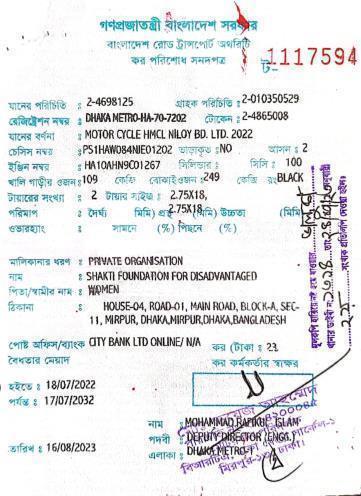 গণপ্রজাতন্ত্রী বাংলাদেশ সরকার
বাংলাদেশ রোড ট্রান্সপোর্ট অথরিটি
কর পরিশোধ সনদপত্র
ট- 1117594
যানের পরিচিতি : 2-4698125 গ্রাহক পরিচিতি : 2-010350529
রেজিষ্ট্রেশন নম্বর : DHAKA METRO-HA-70-7202 টোকেন : 2-4865008
যানের বর্ণনা : MOTOR CYCLE HMCL NILOY BD. LTD. 2022
চেসিস নম্বর : PS1HAW084NIE01202 ভাড়াকৃত : NO আসন : 2
ইঞ্জিন নম্বর : HA10AHN9C01267 সিলিন্ডার : সিসি : 100
খালি গাড়ীর ওজন : 109 কেজি বোঝাইওজন : 249 কেজি রং BLACK
টায়ারের সংখ্যা : 2 টায়ার সাইজ : 2.75X18,
2.75X18,
পরিমাপ : দৈর্ঘ্য (মিমি) প্রস্থ (মিমি) উচ্চতা (মিমি)
ওভারহ্যাং : সামনে (%) পিছনে (%)
মালিকানার ধরণ : PRIVATE ORGANISATION
নাম : SHAKTI FOUNDATION FOR DISADVANTAGED
পিতা/স্বামীর নাম : WOMEN
ঠিকানা : HOUSE-04, ROAD-01, MAIN ROAD, BLOCK-A, SEC-
11, MIRPUR, DHAKA,MIRPUR,DHAKA,BANGLADESH
পোষ্ট অফিস/ব্যাংক : CITY BANK LTD ONLINE/ N/A কর (টাকা : 23
বৈধতার মেয়াদ কর কর্মকর্তার স্বাক্ষর
হইতে : 18/07/2022
পর্যন্ত : 17/07/2032
নাম : MOHAMMAD RAFIKUL ISLAM
পদবী : DEPUTY DIRECTOR (ENGG.)
তারিখ : 16/08/2023 এলাকা : DHAKA METRO-1